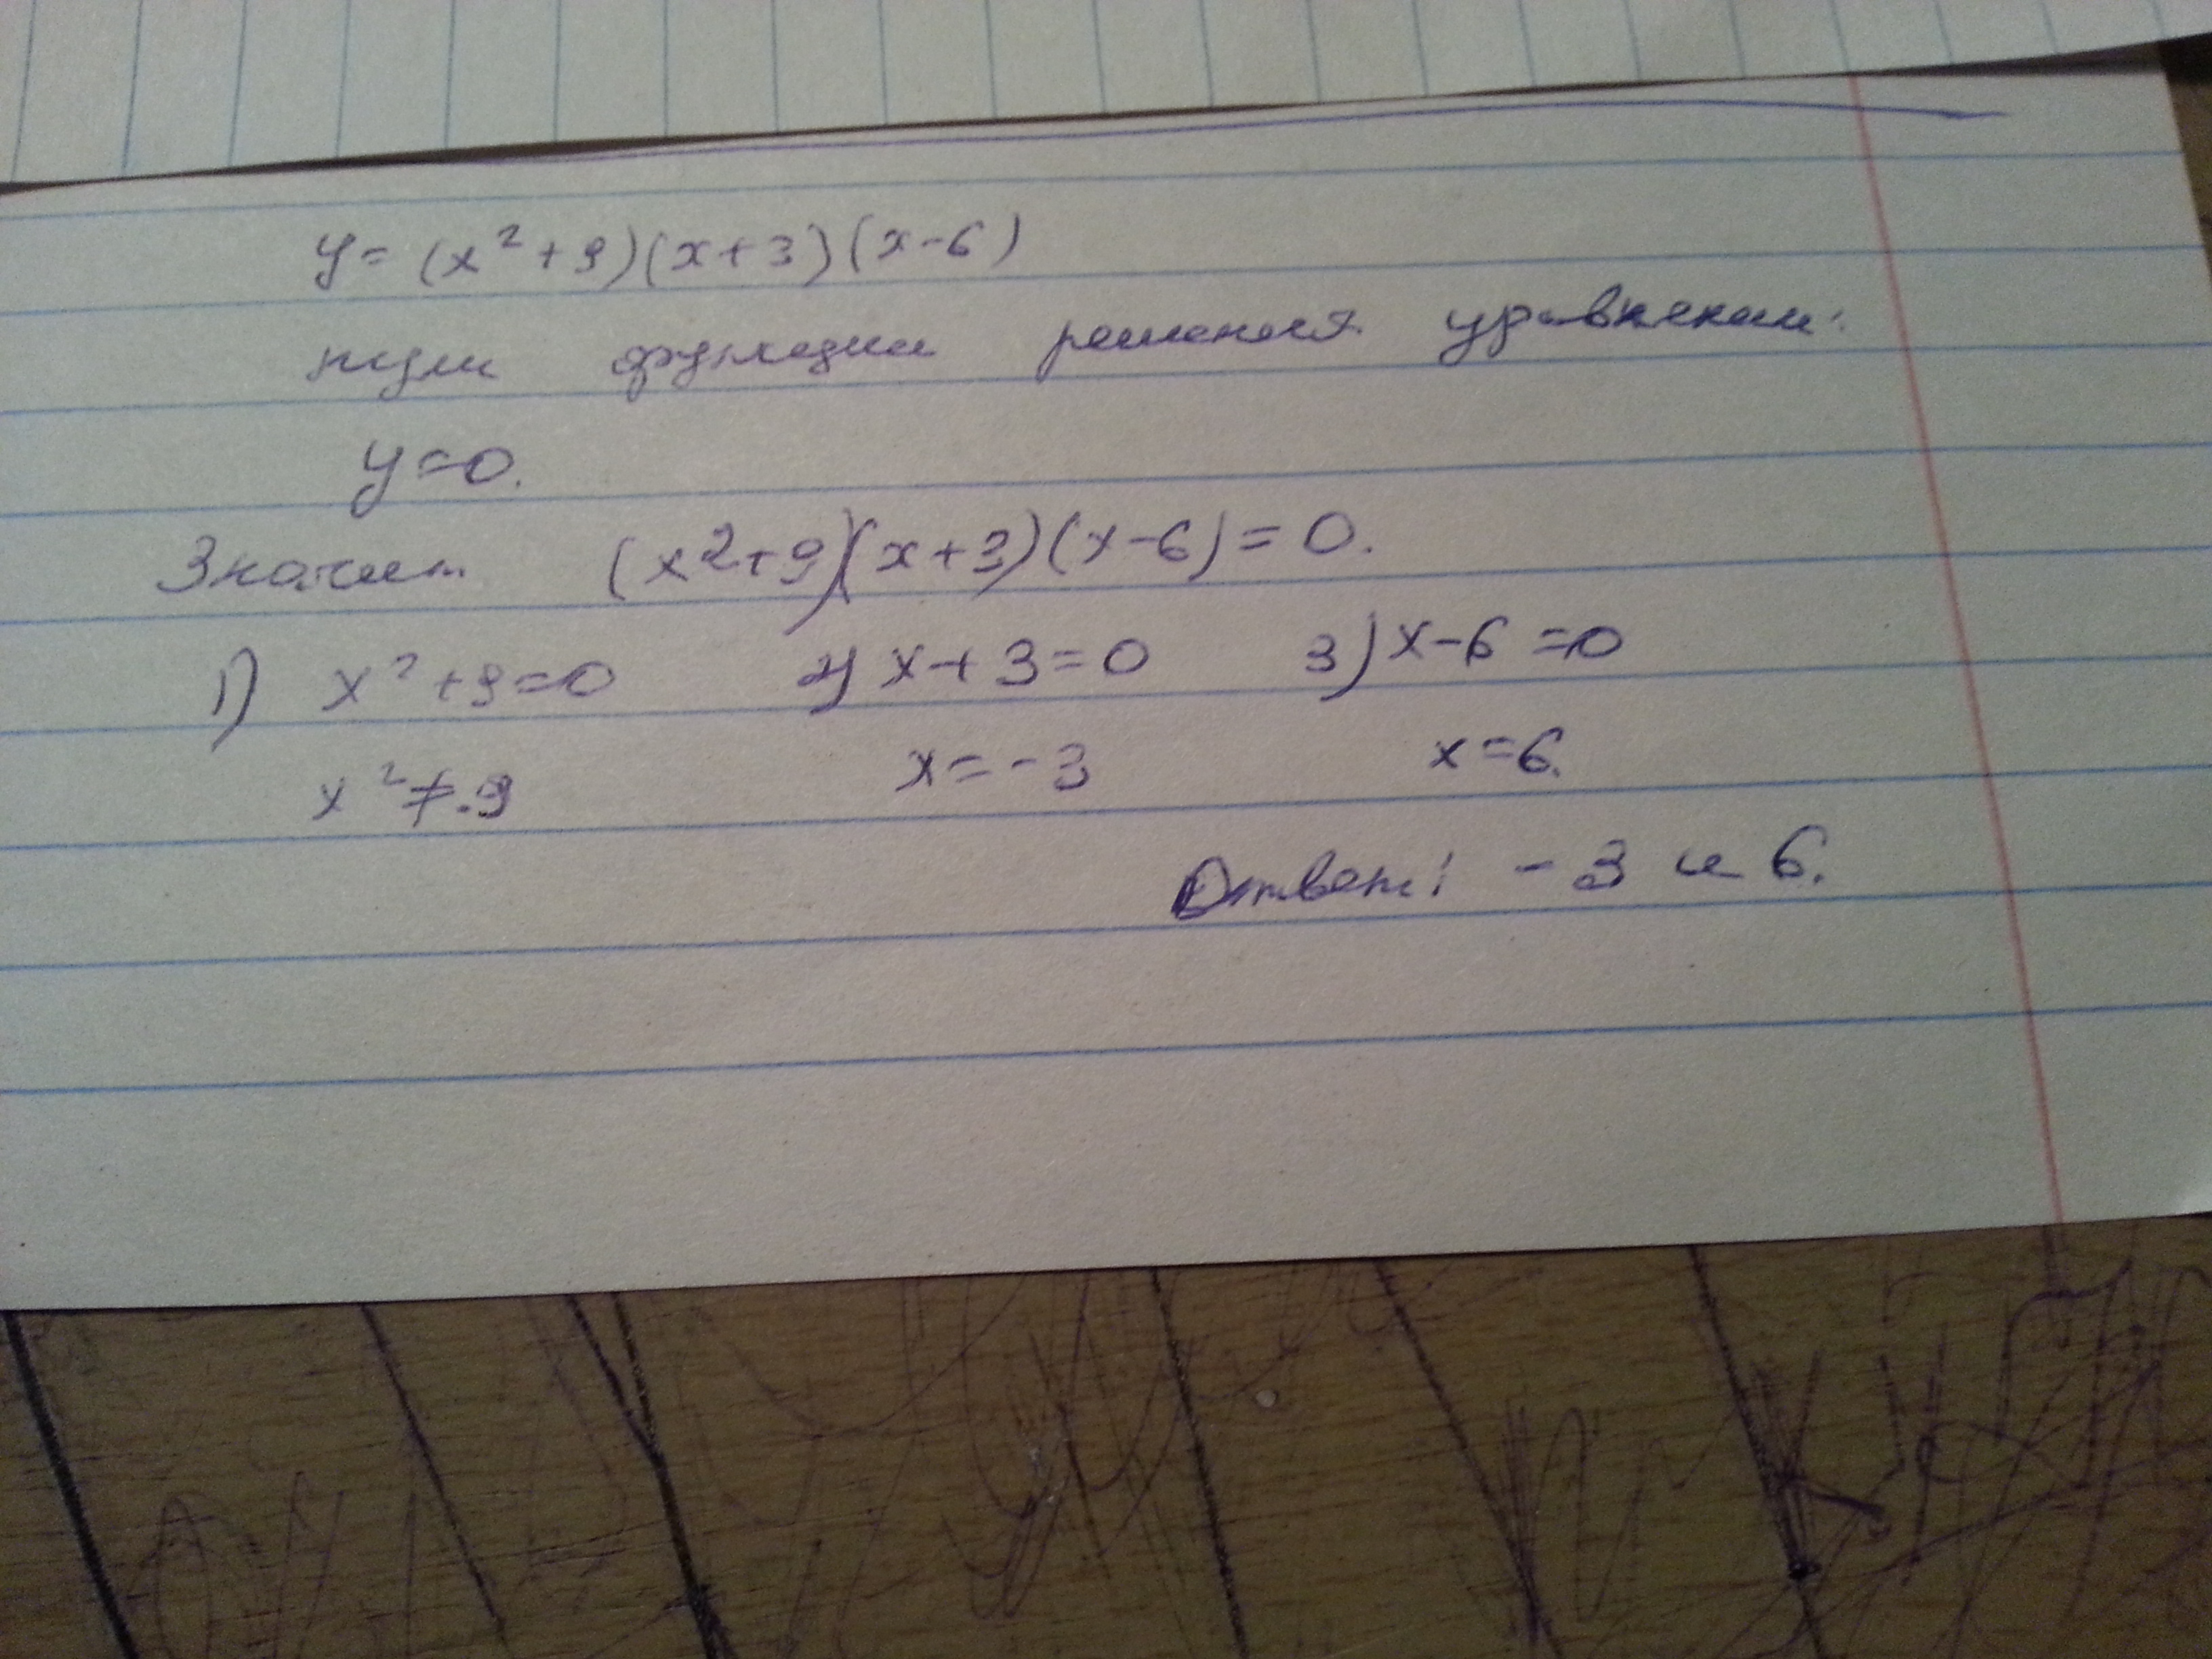 y = (x² + 9)(x + 3)(x - 6)
нули функции решения уравнения:
y = 0.
Значит (x² + 9)(x + 3)(x - 6) = 0.
1) x² + 9 = 0 2) x + 3 = 0 3) x - 6 = 0
x² ≠ -9 x = -3 x = 6.
Ответ: -3 и 6.